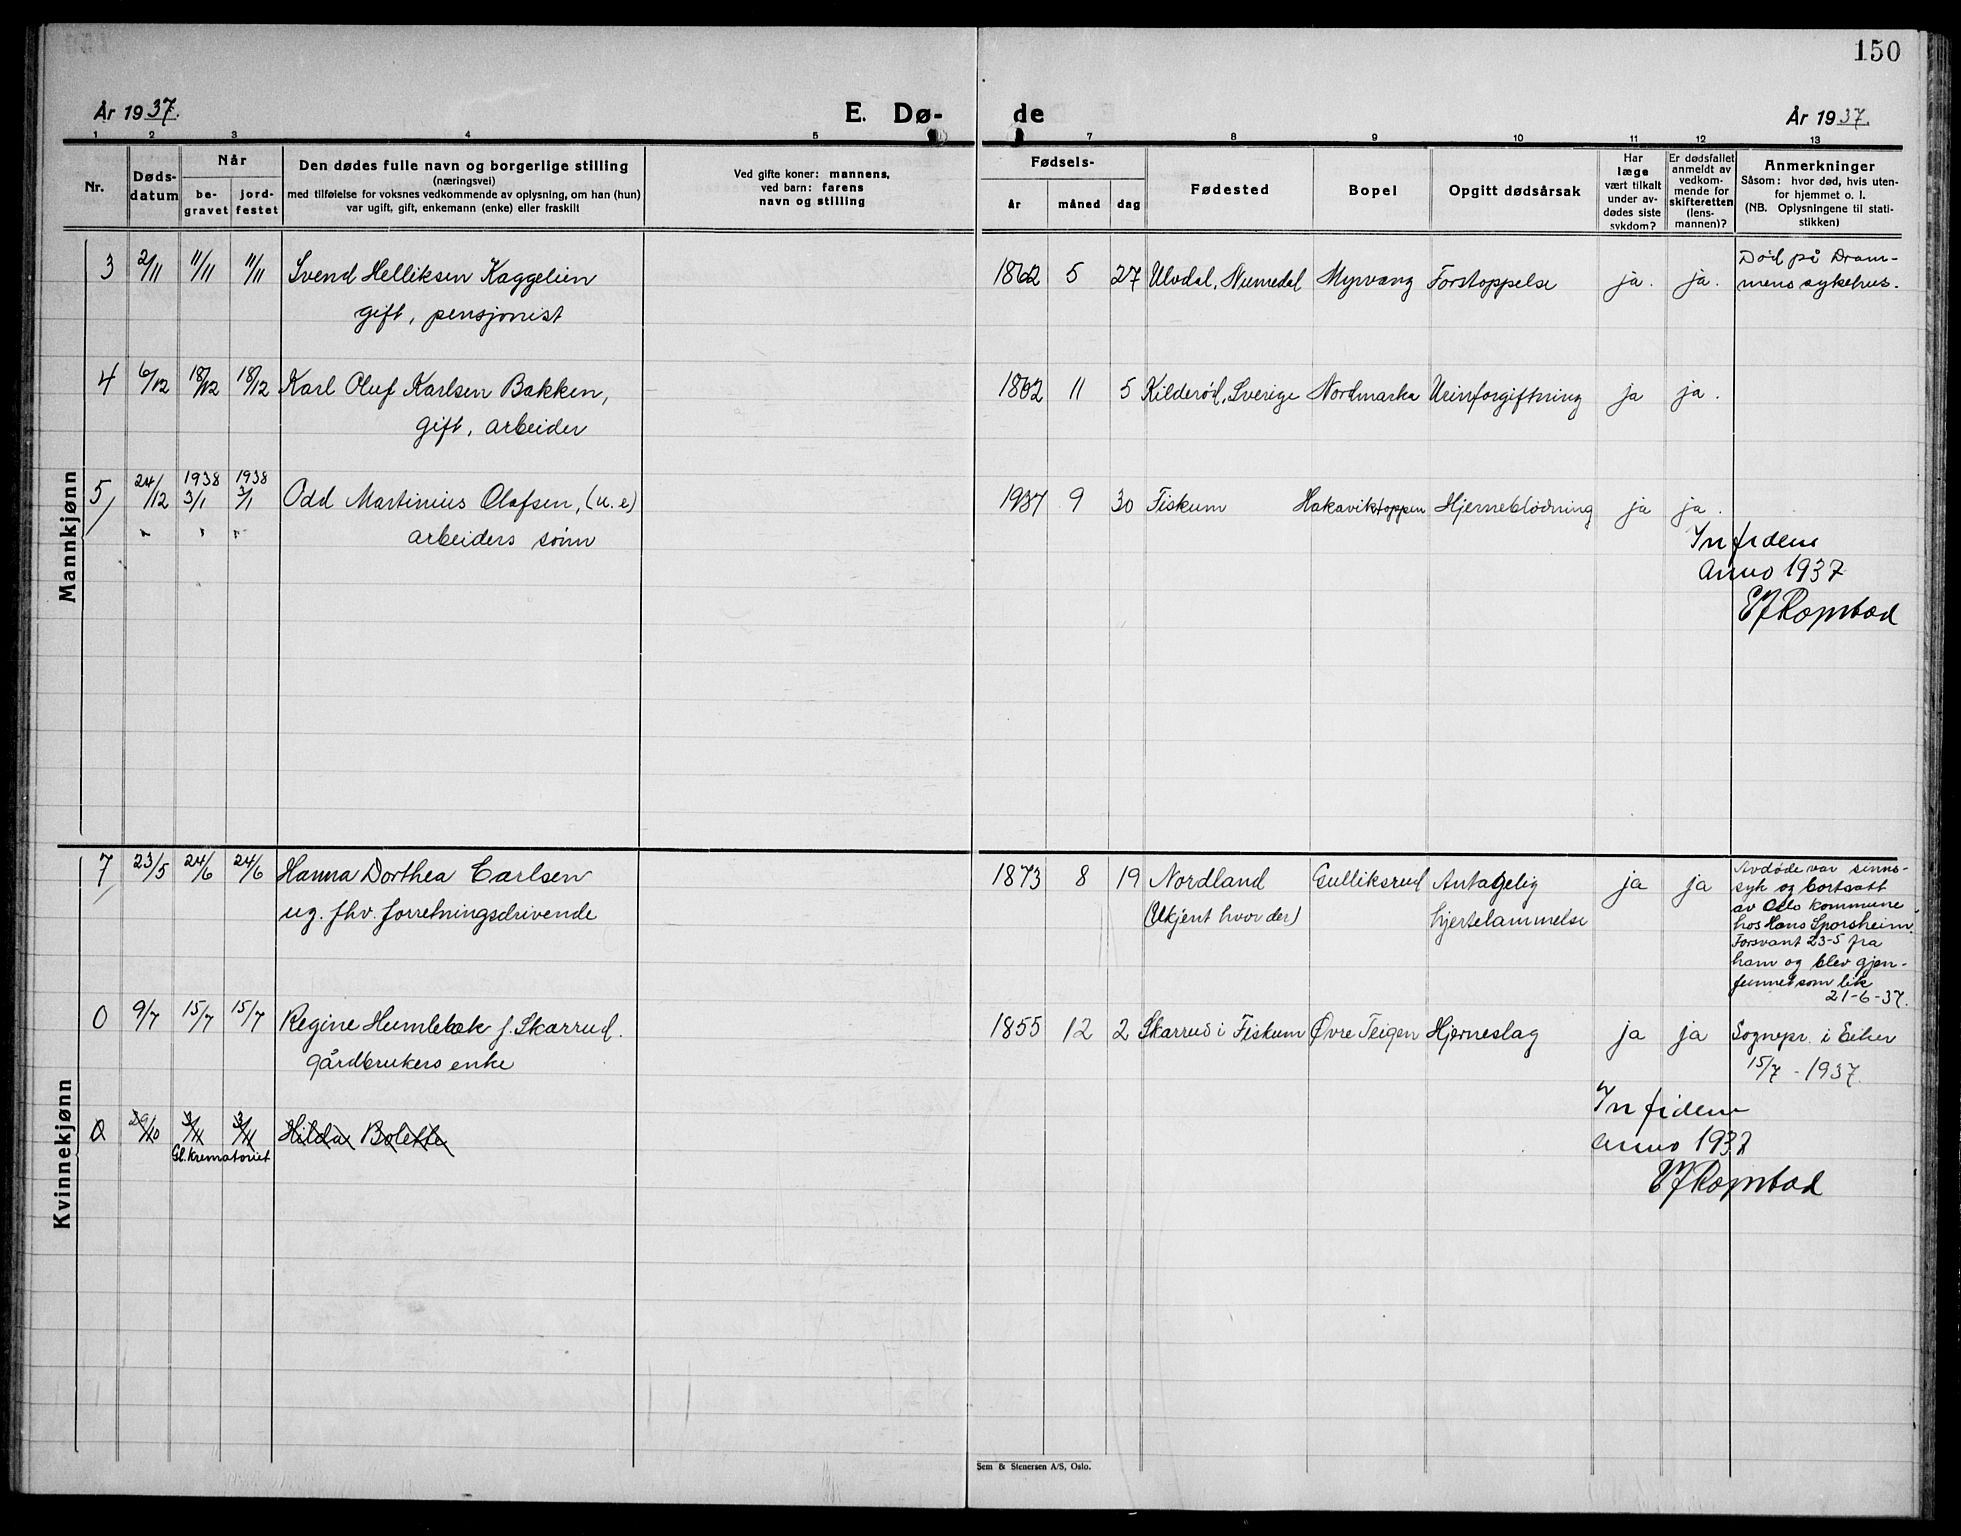 150
År 1937.
E. Dø-
de
År 1937.
1 2 3 4 5 7 8 9 10 11 12 13
Nr.
Døds-
datum
Når
be-
gravet
jord-
festet
Den dødes fulle navn og borgerlige stilling
(næringsvei)
med tilføielse for voksnes vedkommende av oplysning, om han (hun)
var ugift, gift, enkemann (enke) eller fraskilt
Ved gifte koner: mannens,
ved barn: farens
navn og stilling
Fødsels-
år måned dag
Fødested
Bopel
Opgitt dødsårsak
Har
læge
vært tilkalt
under av-
dødes siste
sykdom?
Er dødsfallet
anmeldt av
vedkom-
mende for
skifteretten
(lens-
mannen)?
Anmerkninger
Såsom: hvor død, hvis uten-
for hjemmet o. l.
(NB. Oplysningene til stati-
stikken)
Mannkjønn
3 2/11 11/11 11/11 Svend Helliksen Kaggelien
gift, pensjonist
1862 5 27 Uvdal, Numedal Myrvang Forstoppelse ja. ja.
Død på Dram-
mens sykehus.
4 6/12 18/12 18/12 Karl Oluf Karlsen Bakken,
gift, arbeider
1862 11 5 Kilderød, Sverige Nordmarka Urinforgiftning ja ja.
5 24/12 1938 3/1 1938 3/1 Odd Martinius Olafsen, (u.e)
arbeiders sønn
1937 9 30 Fiskum Hakaviktoppen Hjerneblødning ja ja.
In fidem
anno 1937
Kvinnekjønn
7 23/5 24/6 24/6 Hanna Dorthea Carlsen
ug. fhv. forretningsdrivende
1873 8 19 Nordland Gulliksrud Antagelig ja ja
(Ukjent hvor der) hjertelammelse
Avdøde var sinns-
syk og bortsatt
av Oslo kommune
hos Hans Sporsheim.
Forsvant 23-5 fra
ham og blev gjen-
funnet som lik
21-6-37.
0 9/7 15/7 15/7 Regine Humlebæk f. Skarrud.
gårdbrukers enke
1855 12 2 Skarrud i Fiskum Øvre Teigen Hjerneslag ja ja
Sognepr. i Eiker
15/7 - 1937.
0 29/10 3/11 3/11 Hilda Bolette
Gl. Krematoriet
In fidem
anno 1937
Sem & Stenersen A/S, Oslo.